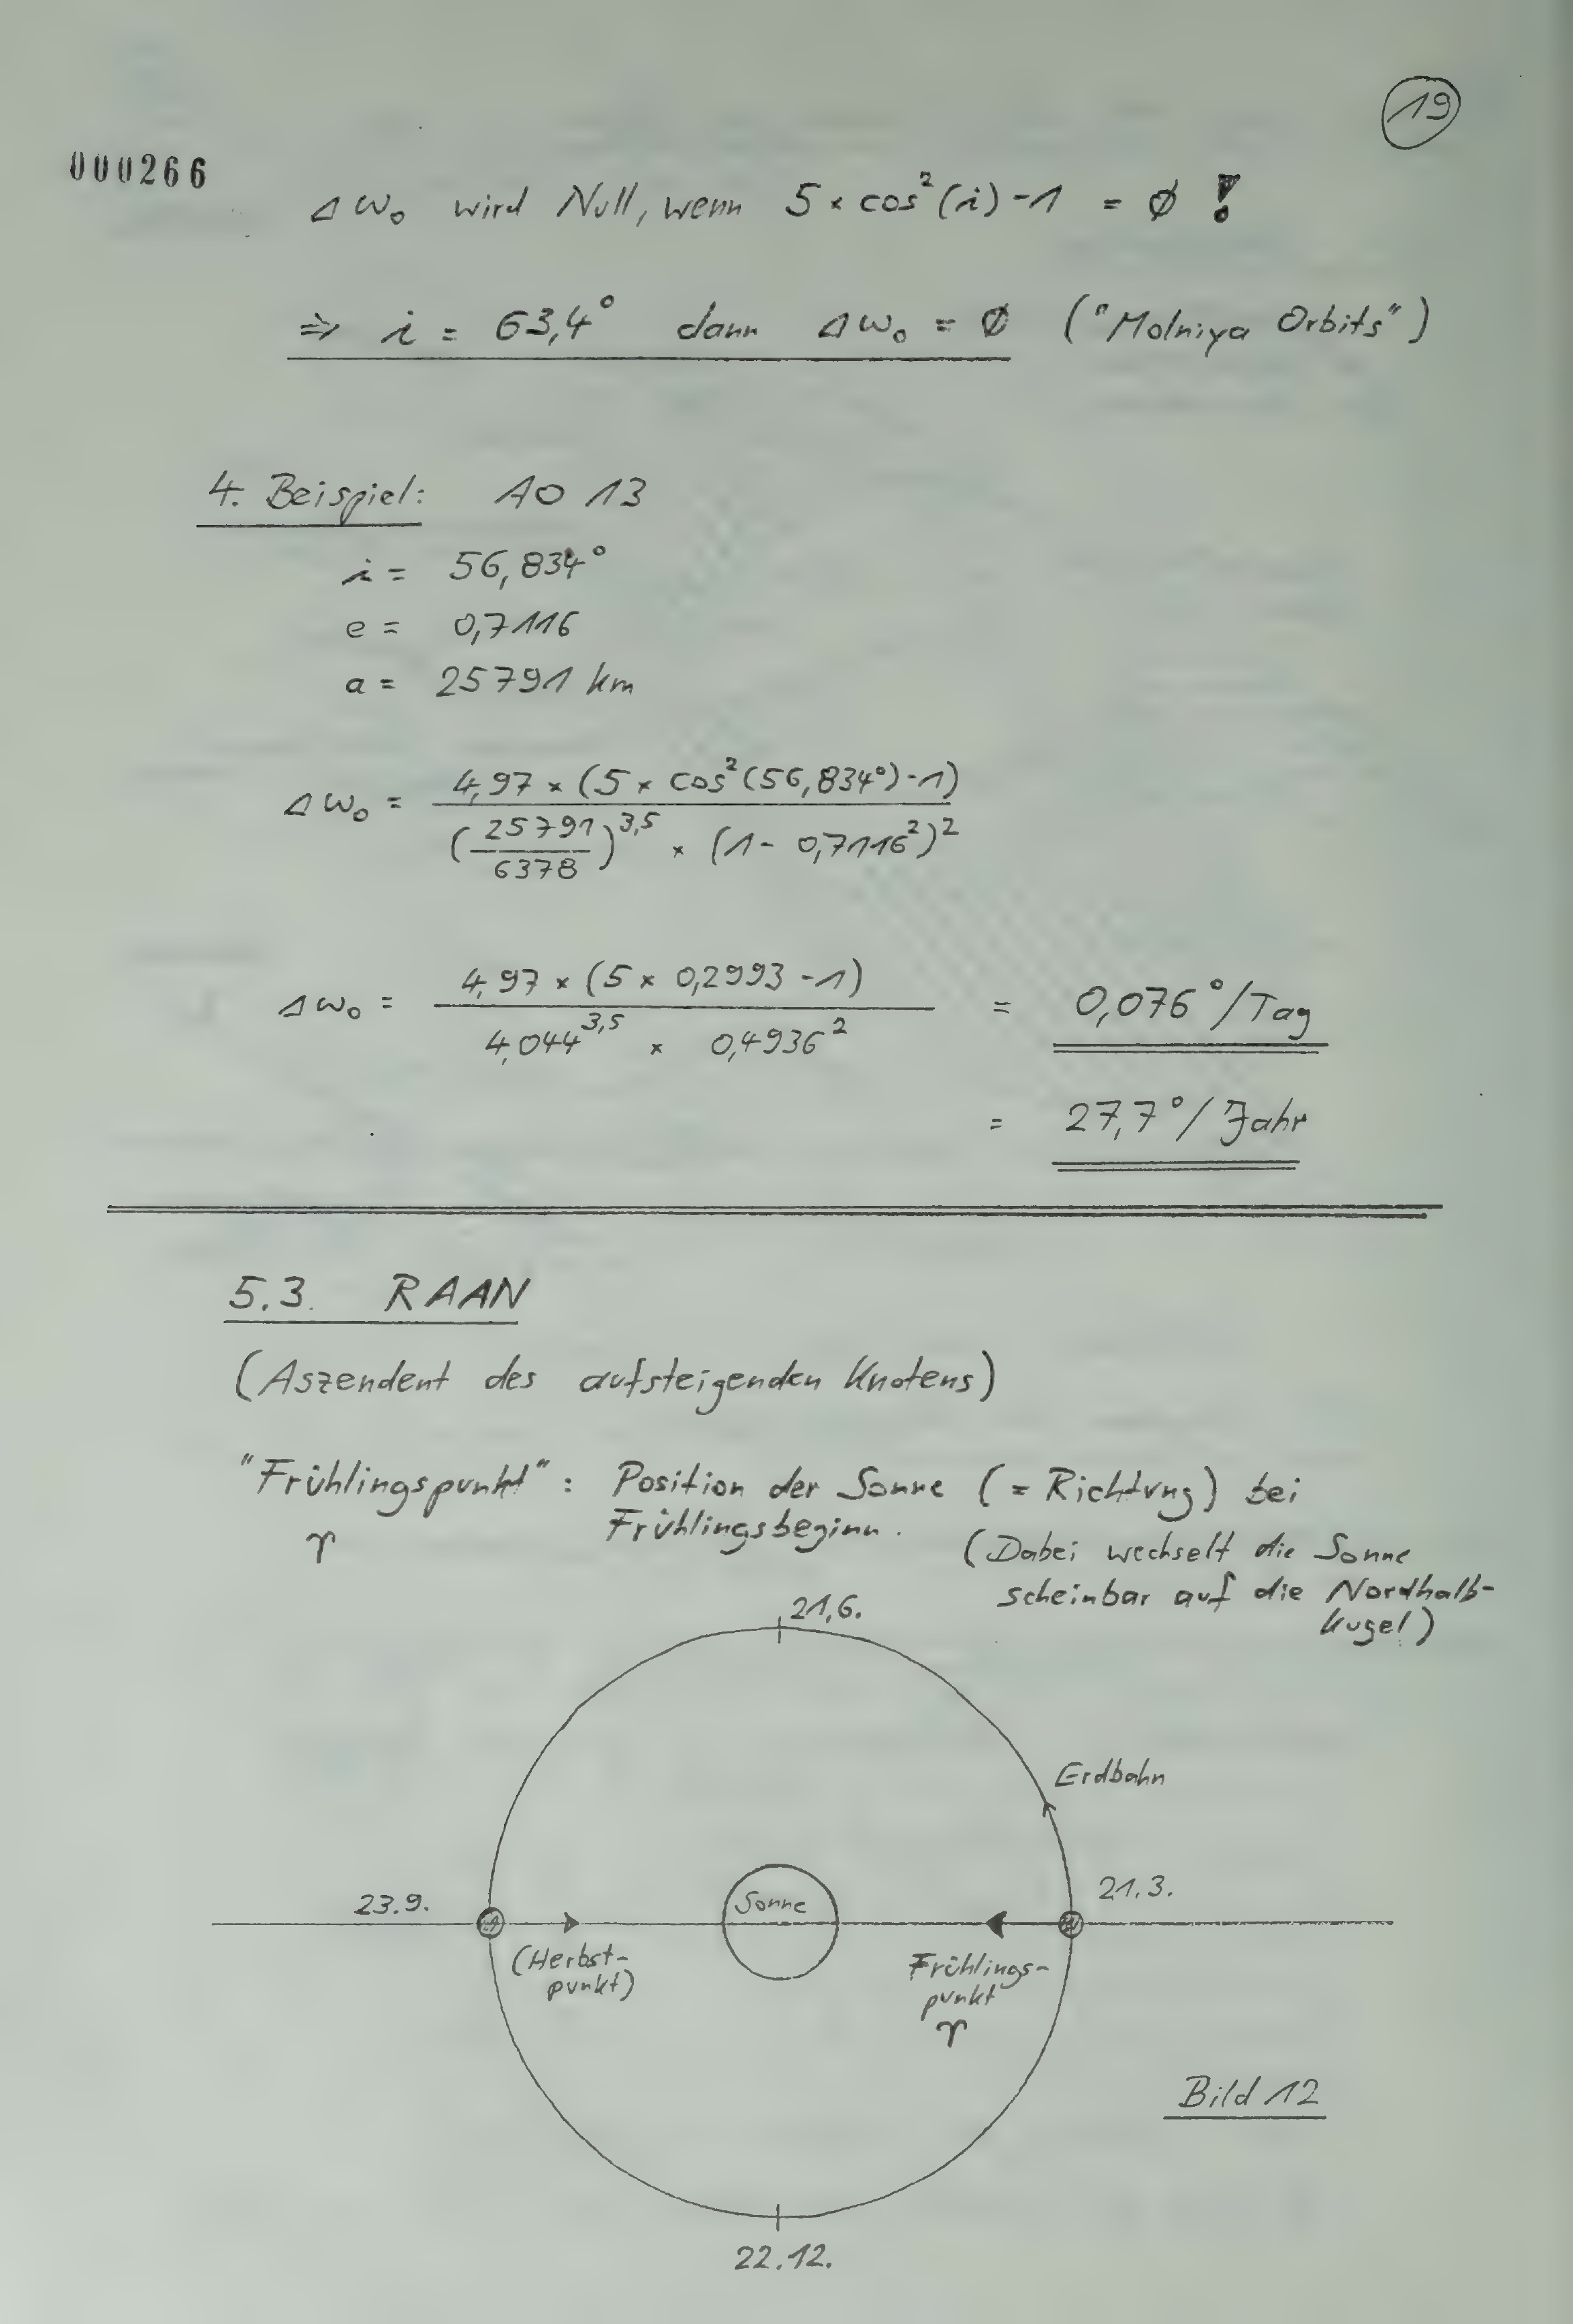 19
000266
Δω₀ wird Null, wenn 5 × cos²(i) - 1 = ∅ !
⇒ i = 63,4° dann Δω₀ = ∅ ("Molniya Orbits")
4. Beispiel: AO 13
i = 56,834°
e = 0,7116
a = 25791 km
Δω₀ = 4,97 × (5 × cos²(56,834°) - 1)
(25791/6378)^3,5 × (1 - 0,7116²)²
Δω₀ = 4,97 × (5 × 0,2993 - 1) = 0,076°/Tag
4,044^3,5 × 0,4936²
= 27,7°/Jahr
5.3. RAAN
(Aszendent des aufsteigenden Knotens)
"Frühlingspunkt": Position der Sonne (= Richtung) bei
♈ Frühlingsbeginn.
(Dabei wechselt die Sonne
scheinbar auf die Nordhalb-
kugel)
21.6.
Erdbahn
23.9.
Sonne
21.3.
(Herbst-
punkt)
Frühlings-
punkt
♈
Bild 12
22.12.